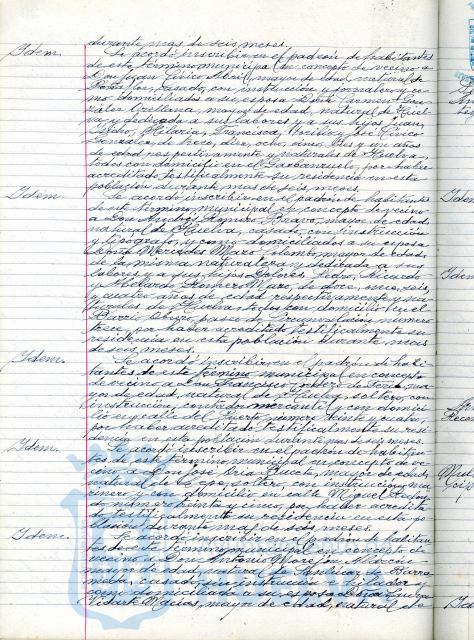 durante mas de seis meses.
Idem. Se acordó inscribir en el padrón de habitantes
de este término municipal en concepto de vecino a
Don Juan Cívico Abril, mayor de edad, natural de
casado, con instrucción y jornalero y co-
mo domiciliados a su esposa Doña Carmen Gon-
zález Orellana, mayor de edad, natural de Huel-
va, y dedicada a sus labores y a sus hijos Juan,
Hilaria, Francisca, y José Cívico
González, de trece, diez, ocho, cinco, tres y un años
de edad respectivamente y naturales de Huelva,
todos con domicilio en el Garbanzuelo, por haber
acreditado testificalmente su residencia en esta
población durante mas de seis meses.
Idem. Se acordó inscribir en el padrón de habitantes
de este término municipal en concepto de vecino
a Don Andrés Romero Bravo, mayor de edad,
natural de Huelva, casado, con instrucción
y tipógrafo, y como domiciliados a su esposa
Doña Mercedes Maro mayor de edad,
de la misma naturaleza y dedicada a sus
labores y a sus hijos Dolores, Pedro, Ricardo
y Abelardo Romero Maro, de doce, nueve, seis
y cuatro años de edad respectivamente y na-
turales de Huelva, todos con domicilio en el
Barrio Obrero, paseo de Circunvalación, número
trece, por haber acreditado testificalmente su
residencia en esta población durante mas
de seis meses.
Idem. Se acordó inscribir en el padrón de habi-
tantes de este término municipal en concepto
de vecino a Don Francisco de Feria, ma-
yor de edad, natural de Huelva, soltero, con
instrucción, contador mercantil y con domici-
lio en calle número veinte y cuatro,
por haber acreditado testificalmente su resi-
dencia en esta población durante mas de seis meses.
Idem. Se acordó inscribir en el padrón de habitan-
tes de este término municipal en concepto de ve-
cino a Don José mayor de edad,
natural de Lepe, soltero, con instrucción, ma-
rinero y con domicilio en calle Miguel Redon-
do número treinta y cinco, por haber acredita-
do testificalmente su residencia en esta po-
blación durante mas de seis meses.
Idem. Se acordó inscribir en el padrón de habitan-
tes de este término municipal en concepto de
vecino a Don Antonio Morejón Alarcón,
mayor de edad, natural de Sanlúcar de Barra-
meda, casado, sin instrucción e hilador y
como domiciliada a su esposa Doña
Vidarte Macías, mayor de edad, natural de